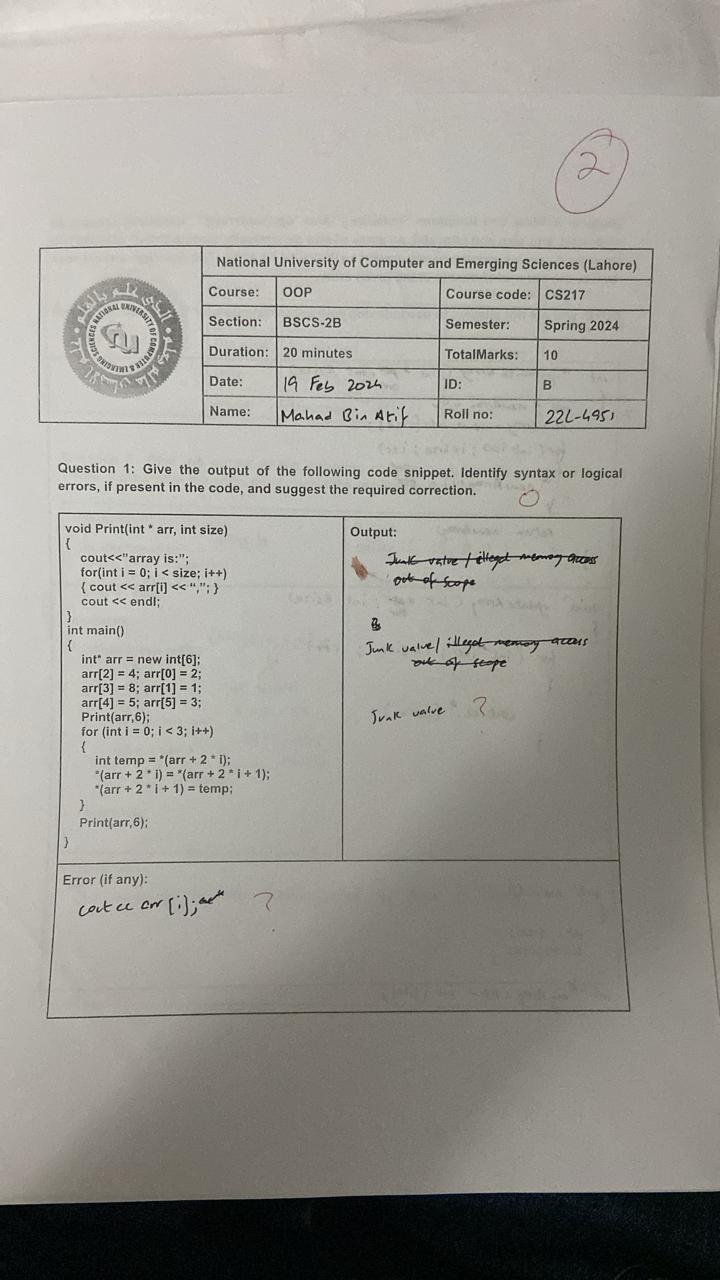 2
National University of Computer and Emerging Sciences (Lahore)
Course: OOP Course code: CS217
Section: BSCS-2B Semester: Spring 2024
Duration: 20 minutes TotalMarks: 10
Date: 19 Feb 2024 ID: B
Name: Mahad Bin Atif Roll no: 22L-4951
Question 1: Give the output of the following code snippet. Identify syntax or logical
errors, if present in the code, and suggest the required correction.
0
void Print(int * arr, int size)
{
cout<<"array is:";
for(int i = 0; i < size; i++)
{ cout << arr[i] << “,”; }
cout << endl;
}
int main()
{
int* arr = new int[6];
arr[2] = 4; arr[0] = 2;
arr[3] = 8; arr[1] = 1;
arr[4] = 5; arr[5] = 3;
Print(arr,6);
for (int i = 0; i < 3; i++)
{
int temp = *(arr + 2 * i);
*(arr + 2 * i) = *(arr + 2 * i + 1);
*(arr + 2 * i + 1) = temp;
}
Print(arr,6);
}
Output:
Junk value / illegal memory access
out of scope
Junk value/ illegal memory access
out of scope
Junk value ?
Error (if any):
cout << arr [i]; ?